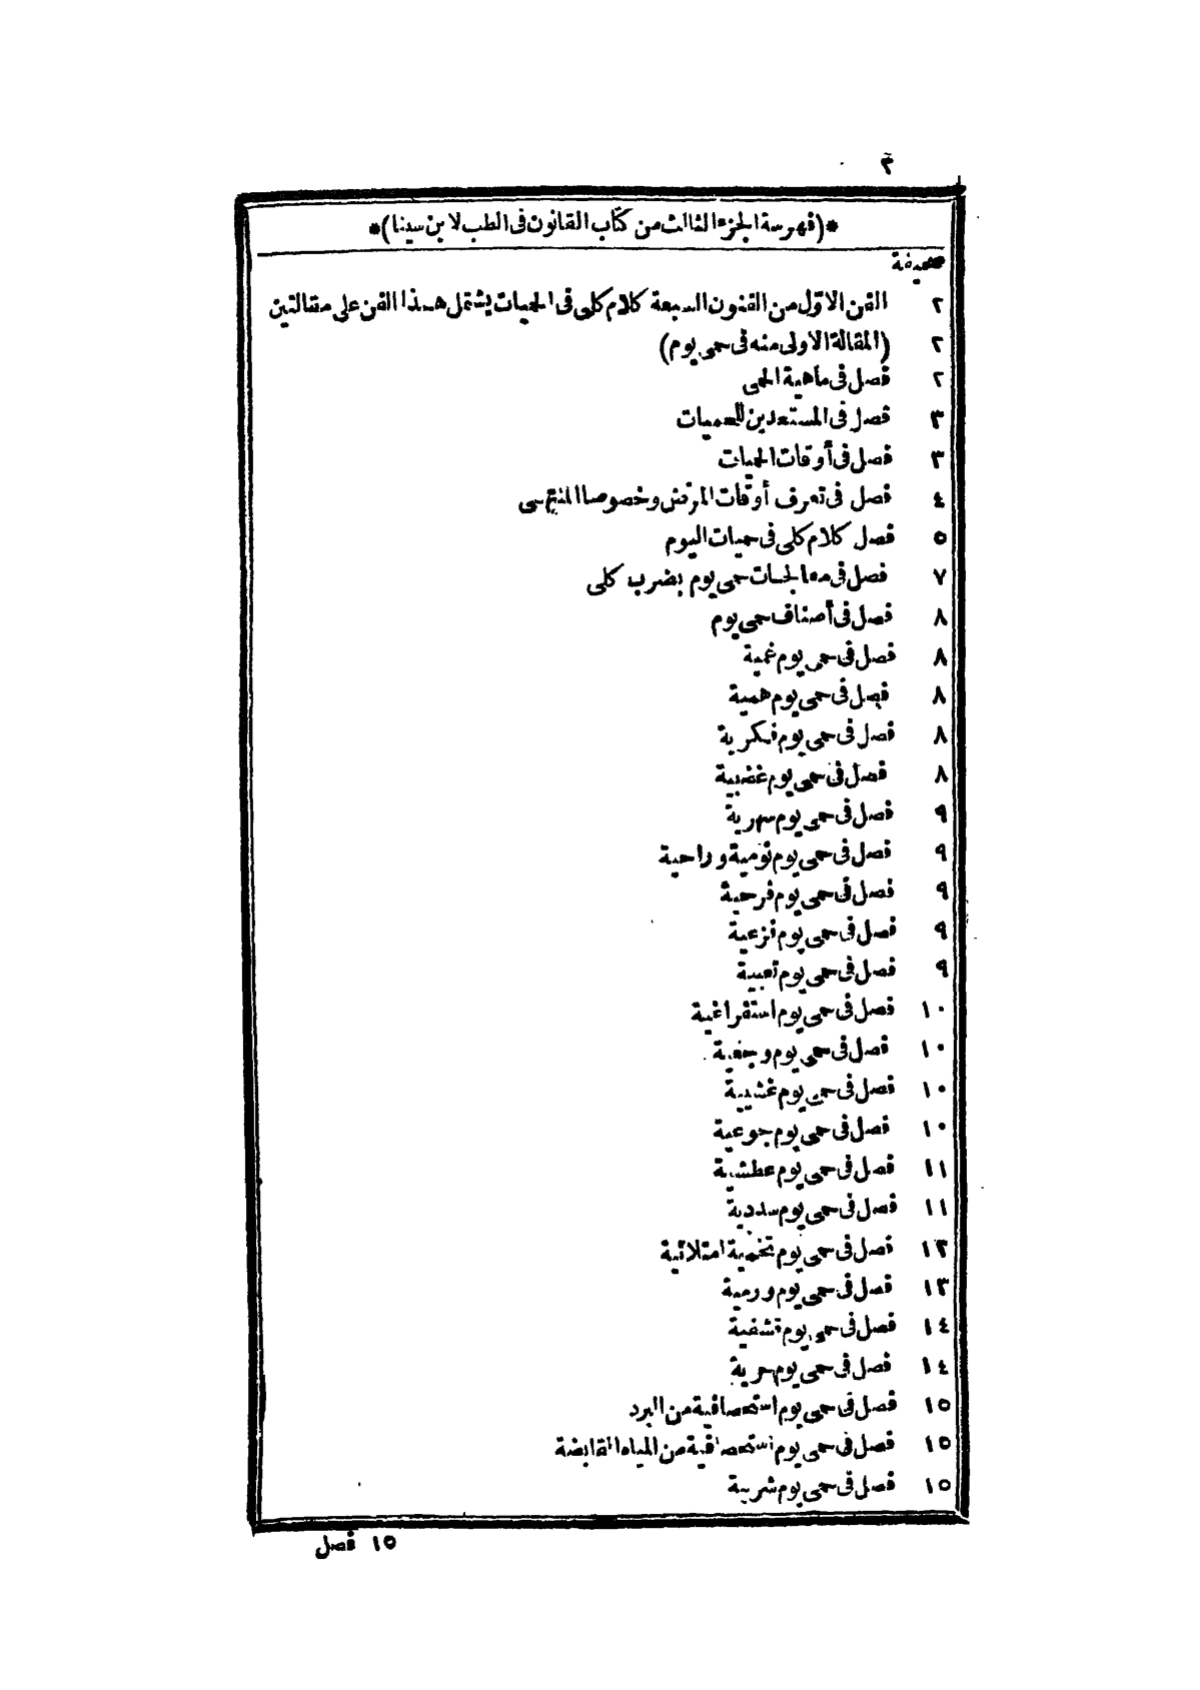 ٢
*(فهرسة الجزء الثالث من كتاب القانون فى الطب لابن سينا)*
صحيفة
٢ الفن الاوّل من الفنون السبعة كلام كلى فى الحميات يشتمل هذا الفن على مقالتين
٢ (المقالة الاولى منه فى حمى يوم)
٢ فصل فى ماهية الحمى
٣ فصل فى المستعدين للحميات
٣ فصل فى أوقات الحميات
٤ فصل فى تعرف أوقات المرض وخصوصا المنتهى
٥ فصل كلام كلى فى حميات اليوم
٧ فصل فى معالجات حمى يوم بضرب كلى
٨ فصل فى أصناف حمى يوم
٨ فصل فى حمى يوم غمية
٨ فصل فى حمى يوم همية
٨ فصل فى حمى يوم فكرية
٨ فصل فى حمى يوم غضبية
٩ فصل فى حمى يوم سهرية
٩ فصل فى حمى يوم نومية وراحية
٩ فصل فى حمى يوم فرحية
٩ فصل فى حمى يوم فزعية
٩ فصل فى حمى يوم تعبية
١٠ فصل فى حمى يوم استفراغية
١٠ فصل فى حمى يوم وجعية
١٠ فصل فى حمى يوم غشيية
١٠ فصل فى حمى يوم جوعية
١١ فصل فى حمى يوم عطشية
١١ فصل فى حمى يوم سددية
١٣ فصل فى حمى يوم تخمية امتلائية
١٣ فصل فى حمى يوم ورمية
١٤ فصل فى حمى يوم قشفية
١٤ فصل فى حمى يوم حرية
١٥ فصل فى حمى يوم استحصافية من البرد
١٥ فصل فى حمى يوم استحصافية من المياه القابضة
١٥ فصل فى حمى يوم شربية
١٥ فصل